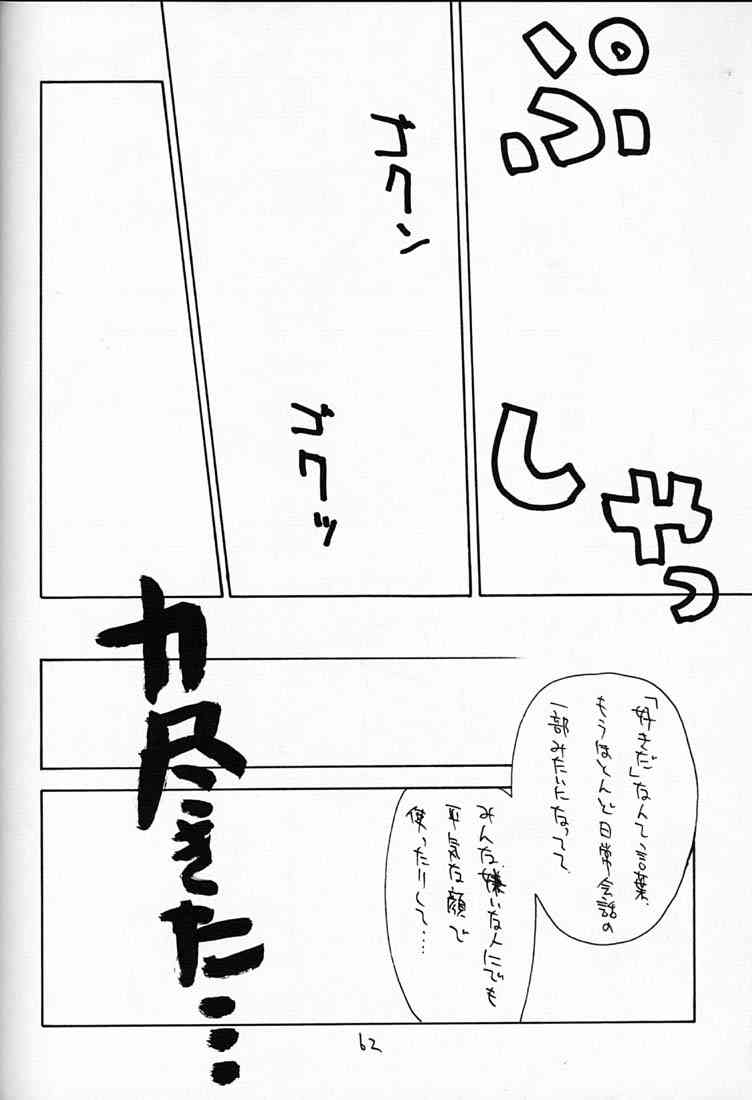 ぷ
しゃっ
カクン
ガクッ
「好きだ」なんて言葉、
もうほとんど日常会話の
一部みたいになってて
みんな嫌いな人にでも
平気な顔で
使ったりして…
力尽きた…
62